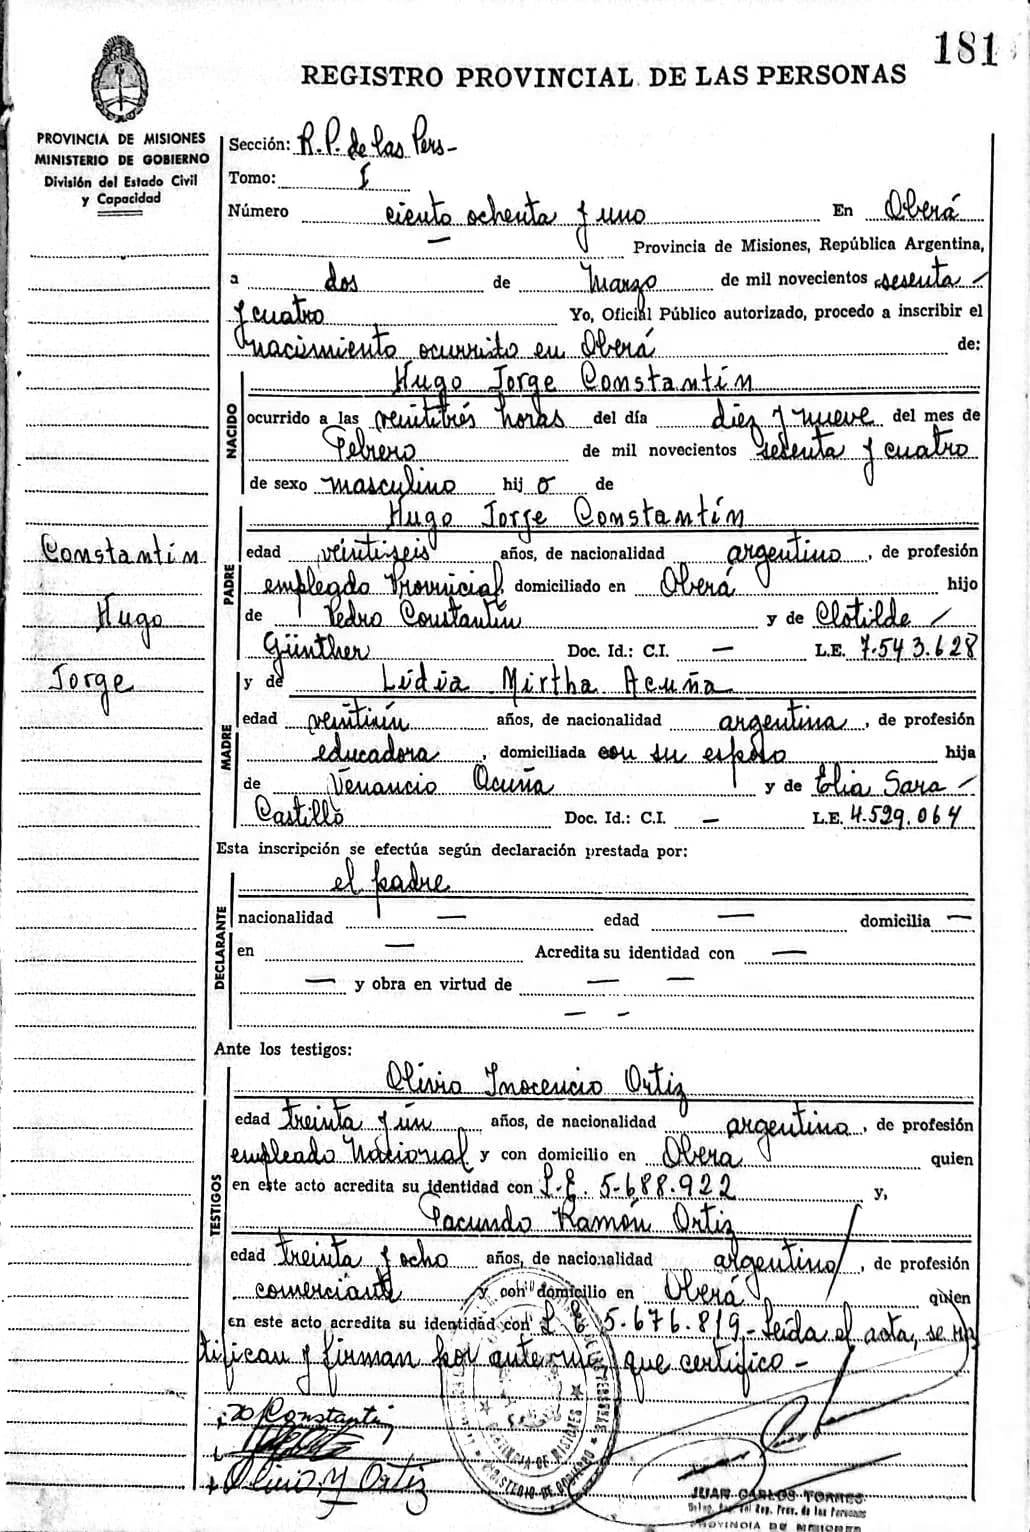 181
REGISTRO PROVINCIAL DE LAS PERSONAS
PROVINCIA DE MISIONES
MINISTERIO DE GOBIERNO
División del Estado Civil
y Capacidad
Sección: R.P. de las Pers-
Tomo: I
Número ciento ochenta y uno En Oberá
— Provincia de Misiones, República Argentina,
a dos de Marzo de mil novecientos sesenta -
y cuatro Yo, Oficial Público autorizado, procedo a inscribir el
nacimiento ocurristo en Oberá de:
NACIDO
Hugo Jorge Constantín
ocurrido a las veintitrés horas del día diez y nueve del mes de
Febrero de mil novecientos sesenta y cuatro
de sexo masculino hij o de
Constantín
Hugo
Jorge
PADRE
Hugo Jorge Constantín
edad veintiseis años, de nacionalidad argentino, de profesión
empleado Provincial domiciliado en Oberá hijo
de Pedro Constantín y de Clotilde -
Günther Doc. Id.: C.I. — L.E. 7.543.628
y de Lidia Mirtha Acuña
MADRE
edad veintiún años, de nacionalidad argentina, de profesión
educadora, domiciliada con su esposo hija
de Venancio Acuña y de Elia Sara -
Castillo Doc. Id.: C.I. — L.E. 4.529.064
Esta inscripción se efectúa según declaración prestada por:
DECLARANTE
el padre
nacionalidad — edad — domicilia —
en — Acredita su identidad con —
— y obra en virtud de — —
— -
Ante los testigos:
TESTIGOS
Olivio Inocencio Ortiz
edad treinta y ún años, de nacionalidad argentino, de profesión
empleado Nacional y con domicilio en Obera quien
en este acto acredita su identidad con L.E. 5-688.922 y,
Facundo Ramón Ortiz
edad treinta y ocho años, de nacionalidad argentino, de profesión
comerciante y con domicilio en Oberá quien
en este acto acredita su identidad con L E 5.676.819.- Leída el acta, se ra
tifican y firman por ante mi, que certifico -
Constantin
Olivio Y Ortiz
PROVINCIA DE MISIONES
MINISTERIO DE GOBIERNO
JUAN CARLOS TORRES
Reg. Prov. de las Personas
PROVINCIA DE MISIONES